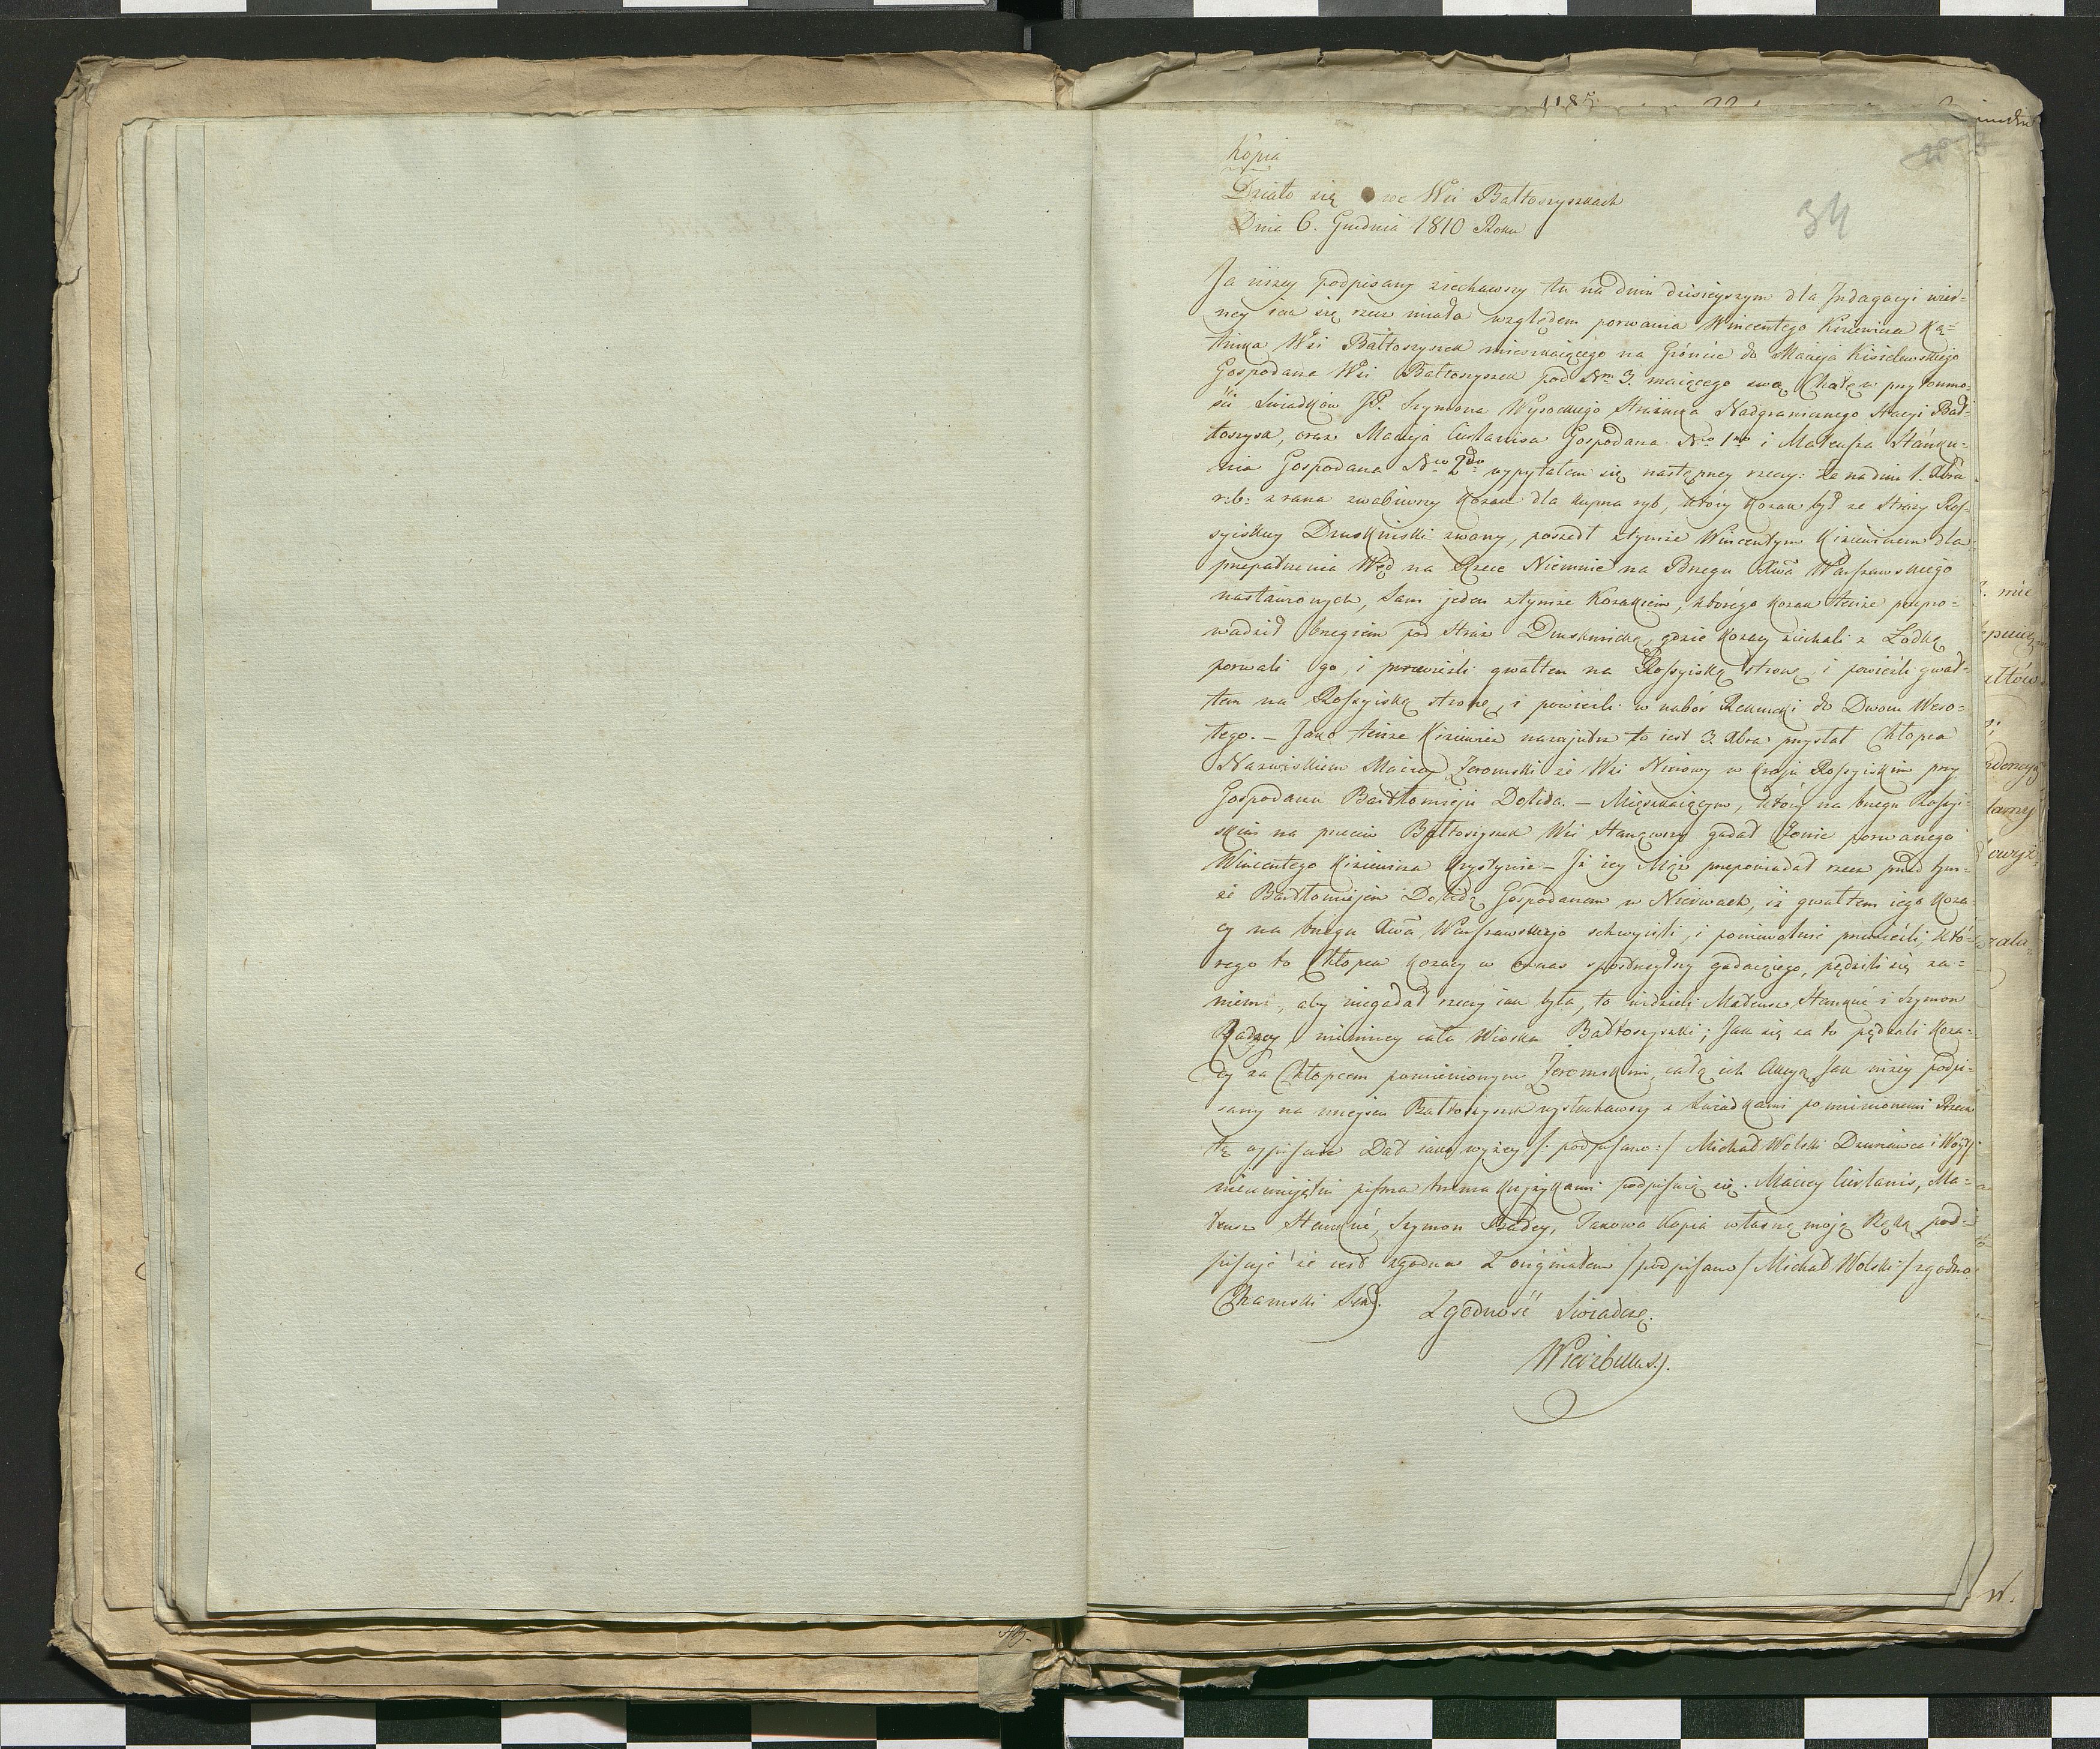 Kopia
Działo się we Wsi Bałtoszyszkach
Dnia 6. Grudnia 1810 Roku
34
Ja niżey podpisany ziechawszy tu na dniu dzisieyszym dla Indagacyi wier=
ney iak się rzecz miała względem porwania Wincentego Kiziewicza Ką=
tnika Wsi Bałtoszyszek mieszkaiącego na Gróncie do Macieja Kisielewskiego
Gospodarza Wsi Bałtoszyszek pod Nrm 3. maiącego swą Chatę w przytomno=
ści Swiadków JP. Szymona Wysockiego Strażnika Nadgranicznego Stacyi Bał=
toszysz, oraz Macieja Cieslanisa Gospodarza Nro 1mo i Mateusza Stańku=
nia Gospodarza Nro 2do wypytałem się następney rzeczy: że na dniu 1. Xbra
r: b: z rana zwabiwszy Kozak dla kupna ryb, który Kozak był ze Straży Ros=
syiskiey Druskinicki zwany, poszedł z tymże Wincentym Kiziewiczem dla
przepatrzenia Węd na Rzece Niemnie na Brzegu Xwa Warszawskiego
nastawionych, Sam jeden z tymże Kozakiem, którego Kozak tenże przepro=
wadził brzegiem pod Straż Druskinicką, gdzie Kozacy ziechali z Łodką
porwali go, i przewieźli gwałtem na Rossyiską stronę, i powieźli gwał=
tem na Rossyiską stronę, i powieźli w nabór Rekrucki do Dworu Weso=
łego. – Jako tenże Kiziewicz nazajutrz to iest 3. Xbra przysłał Chłopca
Nazwiskiem Maciey Żeromski ze Wsi Nierowy w Kraju Rossyiskim przy
Gospodarzu Bartłomieju Dolida. – Mięszkaiącym, który na brzegu Rossyi=
skim na przeciw Bałtoszyszek Wsi Stanąwszy gadał Żonie porwanego
Wincentego Kiziewicza Krystynie – Iż iey Mąż przepowiadał rzecz przed tym=
że Bartłomiejem Dolidą Gospodarzem w Nierwach, iż gwałtem iego Koza=
cy na brzegu Xwa Warszawskiego schwycili, i poniewolnie przewieźli, któ=
rego to Chłopca Kozacy w ów czas spostrzegłszy gadaiącego, pędzili się za=
niem, aby niegadał rzeczy iak była, to widzieli Mateusz Stankuć i Szymon
Radzey, niemniey cała Wioska Bałtoszyszki; Jak się za to pędzali Koza=
cy za Chłopcem pomienionym Żeromskim, całą ich Akcyą Jak niżey podpi=
sany na mieyscu Bałtoszyszek wysłuchawszy z Swiadkami pomienionemi Rzecz
tę wypisuie Dał iako wyżey /: podpisano :/ Michał Wolski Dzierżawca i Wóyt
nieumiejętni pisma trzema krzyżykami podpisuią się. Maciey Cieslanis, Ma=
teusz Stankuć, Szymon Radzey, Takowa Kopia własną moją Ręką pod=
pisuję że iest zgodna z oryginałem /podpisano/ Michał Wolski /: zgodno
Chamski Sek).
Zgodność Swiadczę.
Wierzbicki S).